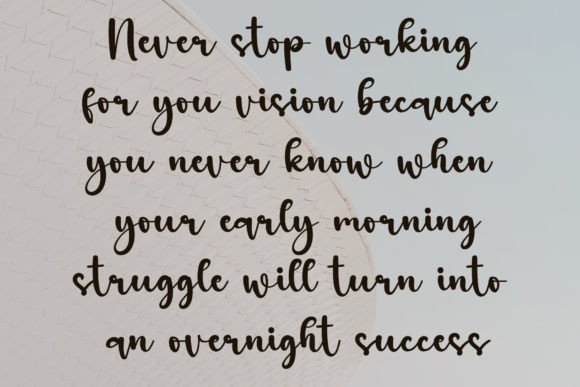 Never stop working
for you vision because
you never know when
your early morning
struggle will turn into
an overnight success